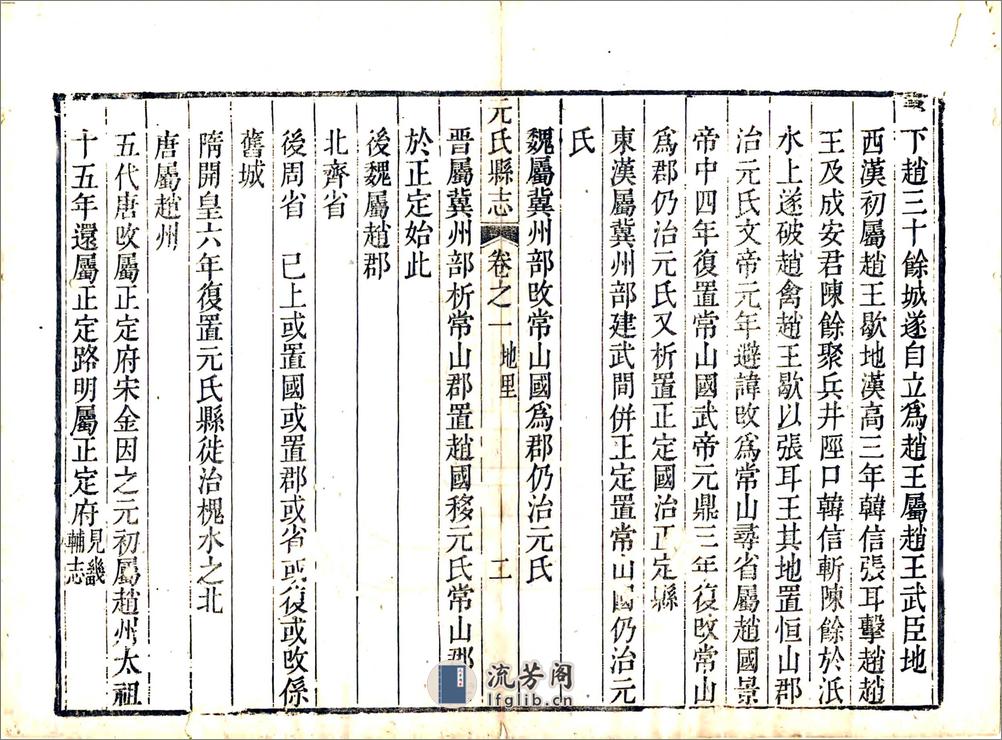 下趙三十餘城遂自立爲趙王屬趙王武臣地
西漢初屬趙王歇地漢高三年韓信張耳擊趙趙
王及成安君陳餘聚兵井陘口韓信斬陳餘於泜
水上遂破趙禽趙王歇以張耳王其地置恒山郡
治元氏文帝元年避諱改爲常山尋省屬趙國景
帝中四年復置常山國武帝元鼎三年復改常山
爲郡仍治元氏又析置正定國治正定縣
東漢屬冀州部建武間併正定置常山國仍治元
氏
魏屬冀州部改常山國爲郡仍治元氏
元氏縣志 卷之一 地里 二
晋屬冀州部析常山郡置趙國移元氏常山郡
於正定始此
後魏屬趙郡
北齊省
後周省 已上或置國或置郡或省或復或改係
舊城
隋開皇六年復置元氏縣徙治槐水之北
唐屬趙州
五代唐改屬正定府宋金因之元初屬趙州太祖
十五年還屬正定路明屬正定府見畿輔志
流芳阁
lfglib.cn